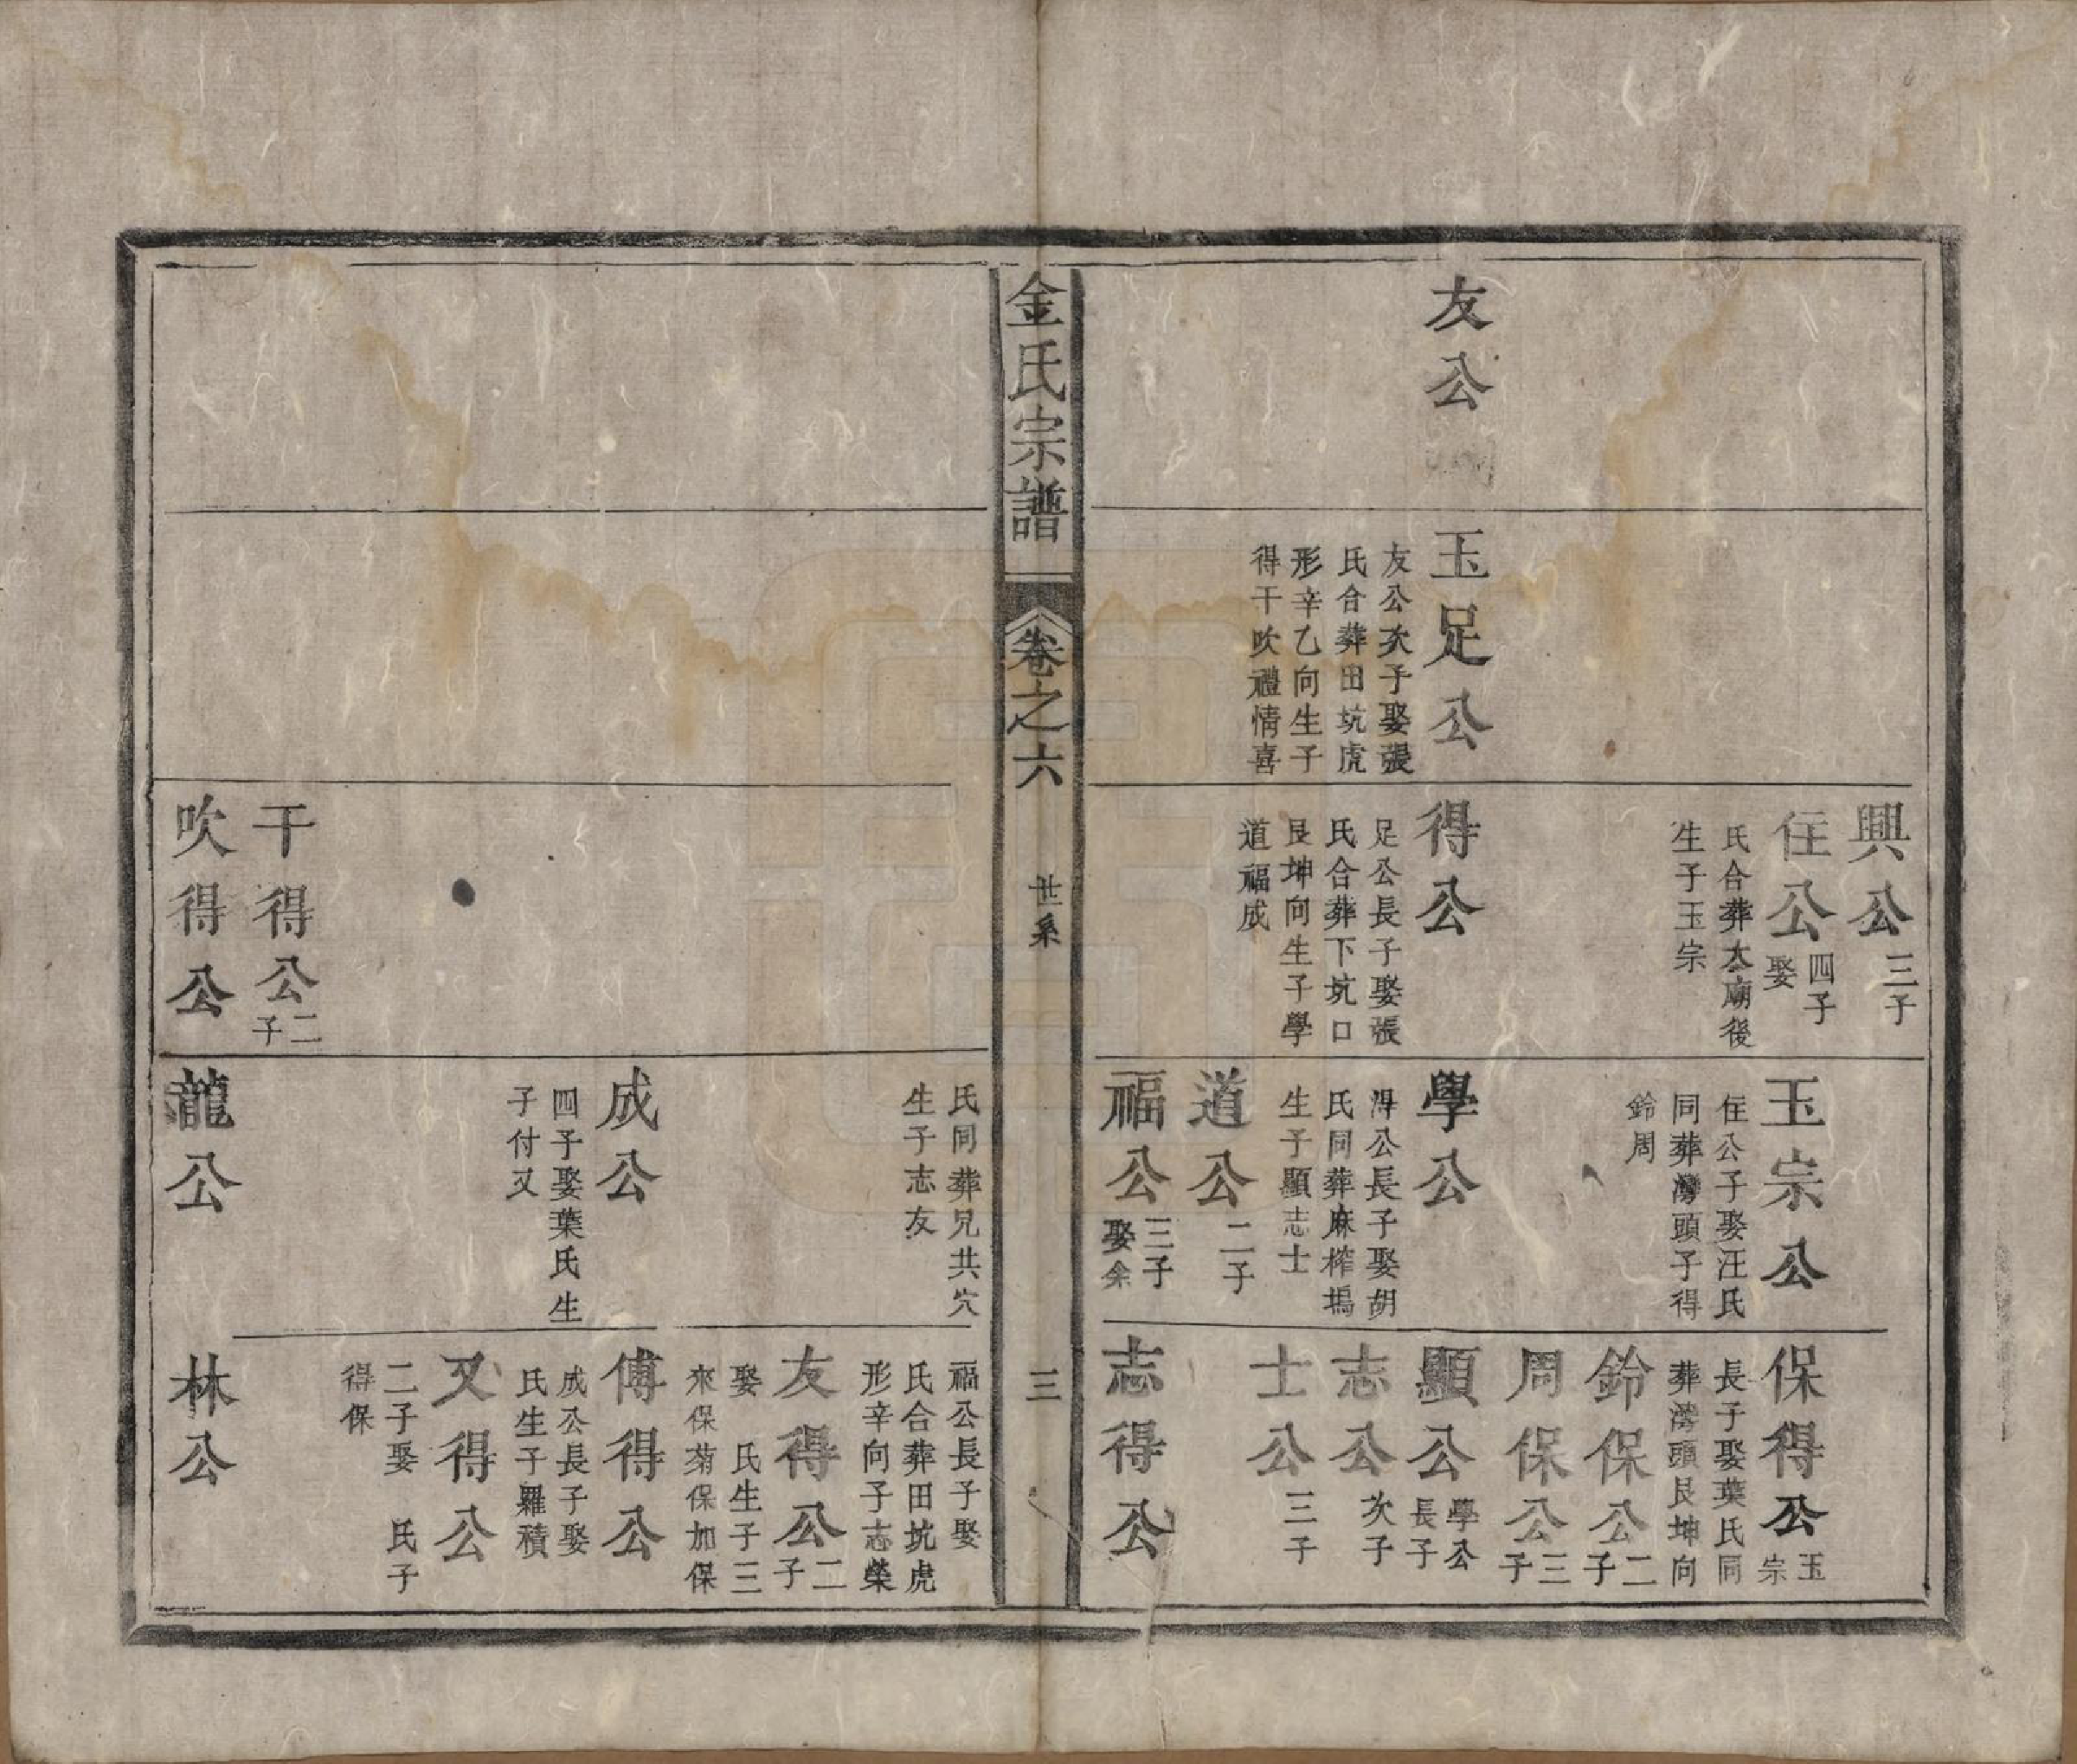 友公
玉足公
友公次子娶張
氏合葬田坑虎
形辛乙向生子
得干吹禮情喜
興公
三子
住公
四子
娶
氏合葬太廟後
生子玉宗
得公
足公長子娶張
氏合葬下坑口
艮坤向生子學
道福成
玉宗公
住公子娶汪氏
同葬灣頭子得
鈴周
學公
得公長子娶胡
氏同葬麻榨塢
生子顯志士
道公
二子
福公
三子
娶余
保得公
玉
宗
長子娶葉氏同
葬灣頭艮坤向
鈴保公
二
子
周保公
三
子
顯公
學公
長子
志公
次子
士公
三子
志得公
金氏宗譜
卷之六
世系
三
干得公
二
子
吹得公
氏同葬兄共穴
生子志友
成公
四子娶葉氏生
子付又
龍公
福公長子娶
氏合葬田坑虎
形辛向子志榮
友得公
二
子
娶 氏生子三
來保菊保加保
傅得公
成公長子娶
氏生子羅積
又得公
二子娶 氏子
得保
林公